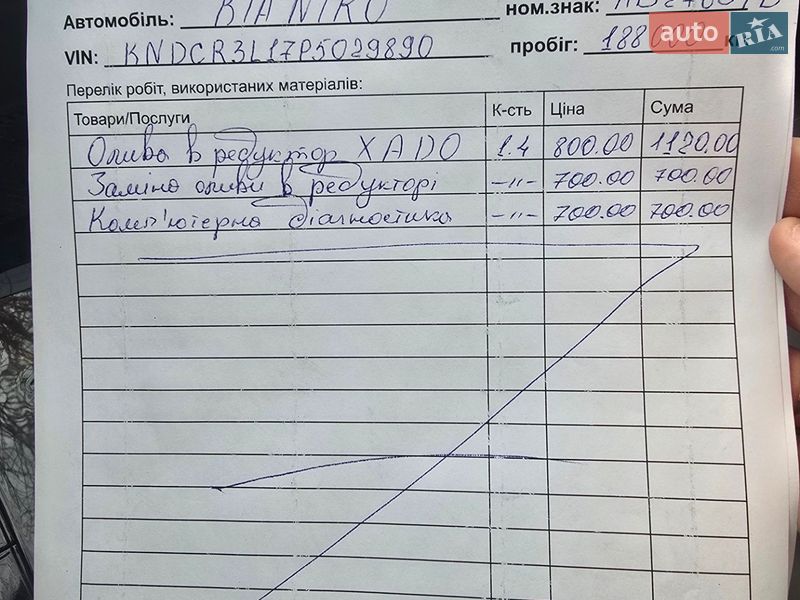 Автомобіль: KIA NIRO
ном.знак:
VIN: KNDCR3L17P5029890
пробіг: 188 000 км
auto RIA .com
Перелік робіт, використаних матеріалів:
Товари/Послуги К-сть Ціна Сума
Олива в редуктор XADO 1.4 800.00 1120.00
Заміна оливи в редукторі -"- 700.00 700.00
Комп'ютерна діагностика -"- 700.00 700.00